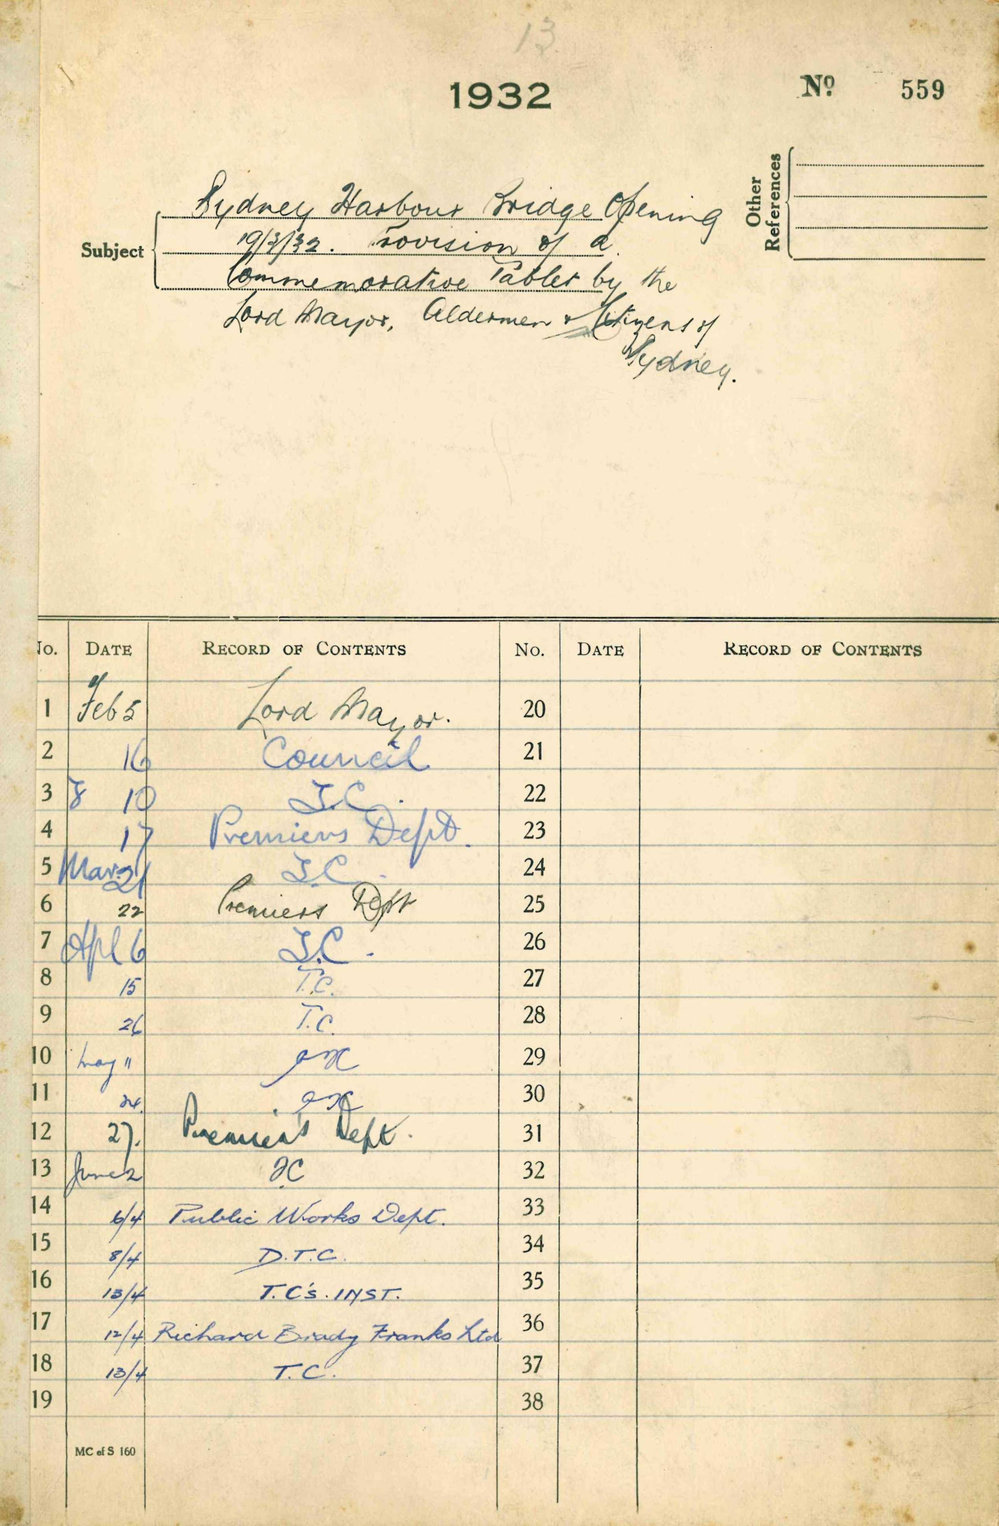 13
1932
Nº 559
Other References
Subject
Sydney Harbour Bridge Opening
19/3/32. Provision of a
Commemorative Tablet by the
Lord Mayor, Aldermen & Citizens of
Sydney.
No. DATE RECORD OF CONTENTS No. DATE RECORD OF CONTENTS
1 Feb 5 Lord Mayor. 20
2 16 Council 21
3 10 T.C. 22
4 17 Premiers Dept. 23
5 Mar 21 T.C. 24
6 22 Premiers Dept 25
7 Apl 6 T.C. 26
8 15 T.C. 27
9 26 T.C. 28
10 May 11 29
11 24. 30
12 27. Premier's Dept. 31
13 June 2 TC 32
14 6/4 Public Works Dept. 33
15 8/4 D.T.C. 34
16 13/4 T.C's. INST. 35
17 12/4 Richard Brady Franks Ltd 36
18 13/4 T.C. 37
19 38
MC of S 160